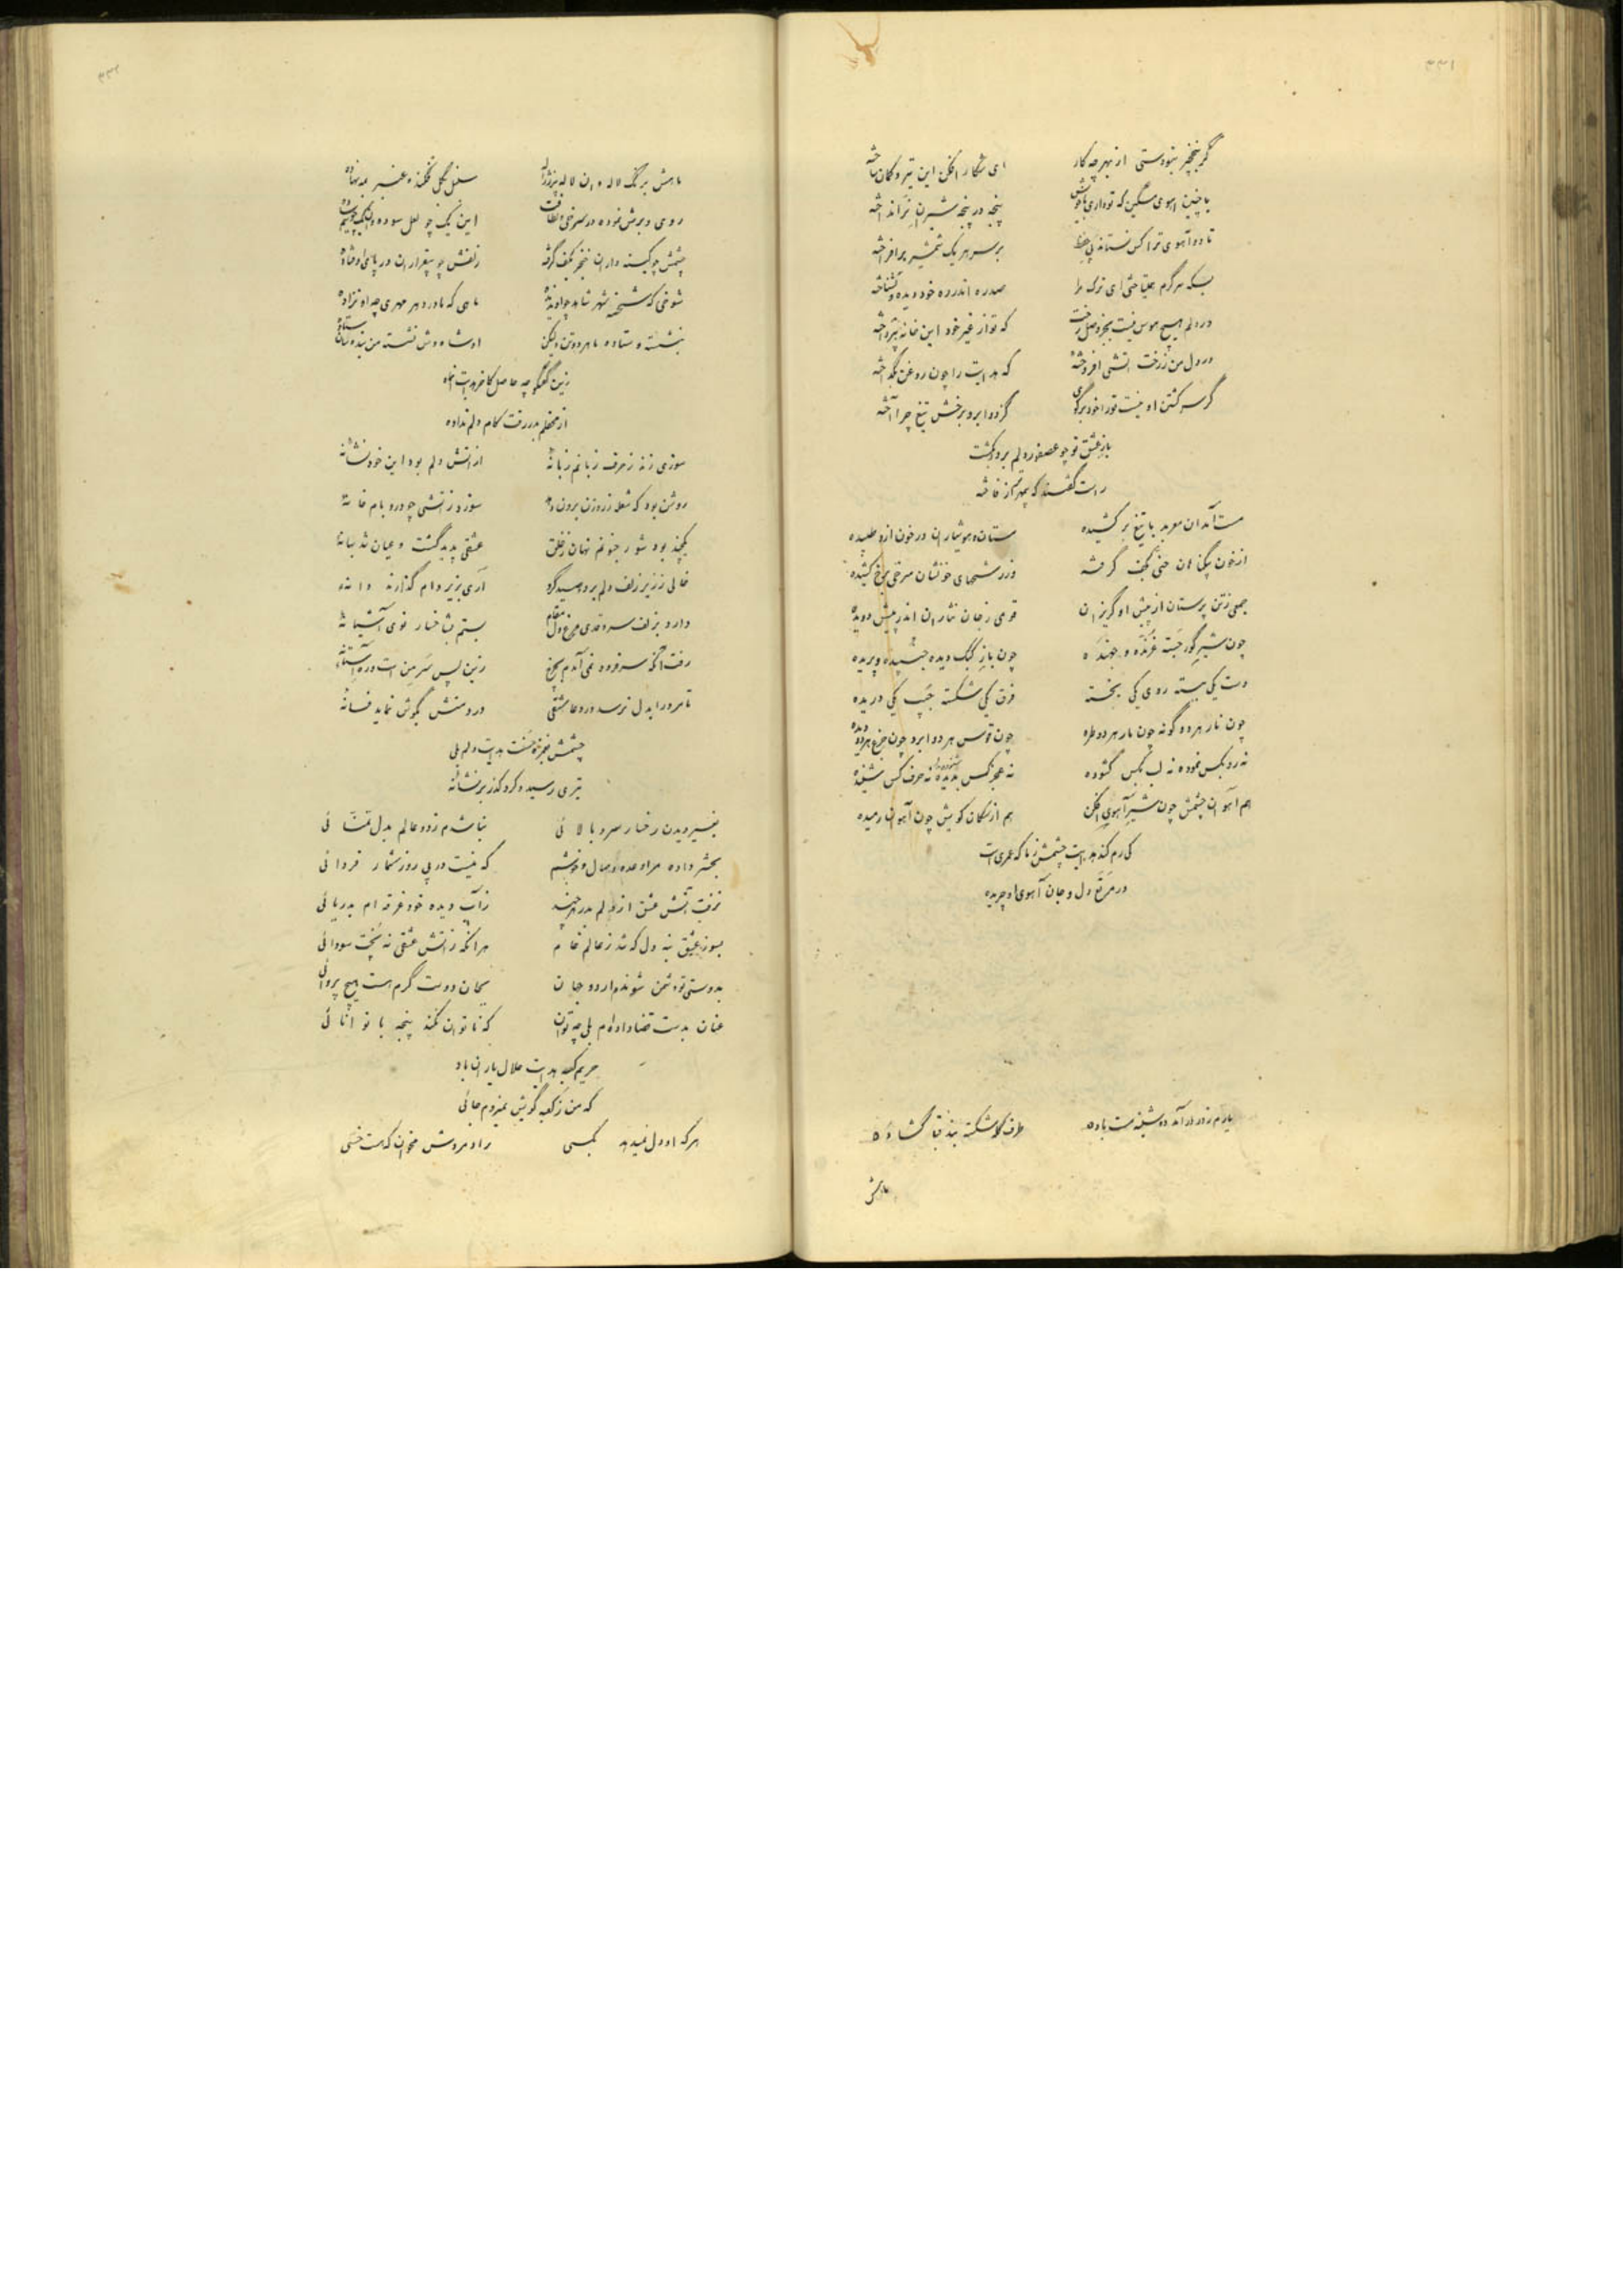 ۳۳۱
گر بنخچیر نبودستی از بهر چه کار ای شکار افکن این تیر و کمان ساخته
با چنین آهوی مشگین که تو داری پنجه در پنجه شیران نر انداخته
تا دو آهوی ترا کس نستاند بر سر هر یک شمشیر برافراخته
بسکه سرگرم ای ترک مرا صدره اندر ره خود دیده و نشناخته
در دلم هیچ هوس نیست بجز وصل رخت که تو از غیر خود این خانه بپرداخته
در دل من ز رخت آتشی افروخته که هدایت را چون روغن بگداخته
گر سر کشتن او نیست تو را خود برگوی کز دو ابرو برخش تیغ چرا آخته
باز عشق تو چو عصفور دلم برد و بکشت
راست گفتند که بهتر از فاخته
مست آمد آن معربد با تیغ بر کشیده مستان و هوشیاران در خون ازو طپیده
از خون بیگناهان بکف گرفته وز رشحهای خونشان سرخی برخ کشیده
جمعی ز تن پرستان از پیش او گریزان قومی ز جان نثاران اندر پیش دویده
چون شیر گور جسته غرنده و جهنده چون باز کبک دیده و پریده
دست یکی ببسته روی یکی بخسته فرق یکی شکسته جیب یکی دریده
چون نار هر دو گونه چون مار هر دو طره چون قوس هر دو ابرو چون جزع هر دو دیده
نه رو بکس نموده نه لب بکس گشوده نه عجز کس بدیده نه حرف کس شنیده
هم آهوان چشمش چون شیر آهو افکن هم از سگان کویش چون آهوان رمیده
کی رم کند هدایت چشمش ز ما که عمریست
در مرتع دل و جان آهوی او چریده
یارم ز در درآمد دوشینه مست باده طرف کله شکسته بند قبا گشاده
ماهش
۳۳۲
ماهش برنگ لاله و ان لاله سنبل بگل فکنده عنبر بمه نهاده
روی و برش نموده در سرخی و لطافت این یک چو لعل سوده
چشمش چو کینه داران خنجر بکف گرفته زلفش چو بیقراران در پای او فتاده
شوخی که شحنه شهر شاهد چو او ندیده ماهی که مادر دهر مهری چو او نزاده
بنشسته و ستاده ما هر دو تن ولیکن او شاه‌وش نشسته من بنده‌سان ستاده
زین گفتگو چه حاصل کاخر هدایت آن ماه
از محفلم بدر رفت کام دلم نداده
سوزی زند ز حرف زبانم زبانه از آتش دلم بود این خود نشانه
روشن بود که شعله ز روزن برون دود سوزد ز آتشی چو در و بام خانه
یکچند بود شور جنونم نهان ز خلق عشقی پدید گشت و عیان شد بهانه
خالی ز زیر زلف دلم برد و صید کرد آری بزیر دام گذارند دانه
دارد بزلف سرو قدی مرغ دل مقام بستم بشاخسار نوی آشیانه
رفت آنکه سر فرود نمی آمدم بچرخ زین پس سر من است و در آستانه
تا مرد را بدل نرسد درد عاشقی درد منش بگوش نماید فسانه
چشمش بغمزه خست هدایت دلم بلی
تیری رسید و کرد گذر بر نشانه
بغیر دیدن رخسار سرو بالائی نباشدم ز دو عالم بدل تمنائی
بحشر داده مرا وعده وصال و خوشم که نیست در پی روز شمار فردائی
نرفت آتش عشق از دلم بدر هر چند ز آب دیده خود غرقه ام بدریائی
بسوز عشق بنه دل که شد ز عالم خام هر آنکه ز آتش عشقی نه پخت سودائی
بدوستی تو دشمن شوندم ار دو جهان بجان دوست گرم هست هیچ پروائی
عنان بدست قضا داده‌ام بلی چه توان که ناتوان نکند پنجه با توانائی
حریم کعبه هدایت حلال یاران باد
که من ز کعبه کویش نمیروم جائی
هر که او دل نمیدهد بکسی راد مردش مخوان که هست خسی